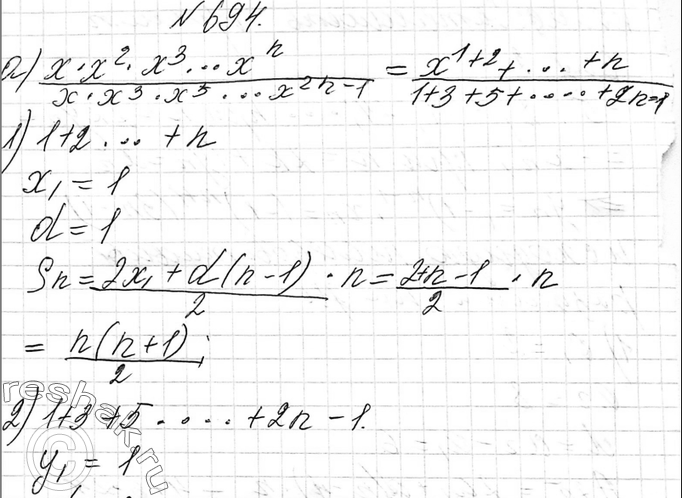 № 694.
а) x·x²·x³...xⁿ / x·x³·x⁵·...x²ⁿ⁻¹ = x¹⁺²⁺···⁺ⁿ / 1+3+5+·····+2n=1
1) 1+2...+n
x₁ = 1
d = 1
Sn = 2x₁ + d(n-1) / 2 · n = 2+n-1 / 2 · n
= n(n+1) / 2 ;
2) 1+3+5·...+2n-1.
y₁ = 1
reshak.ru